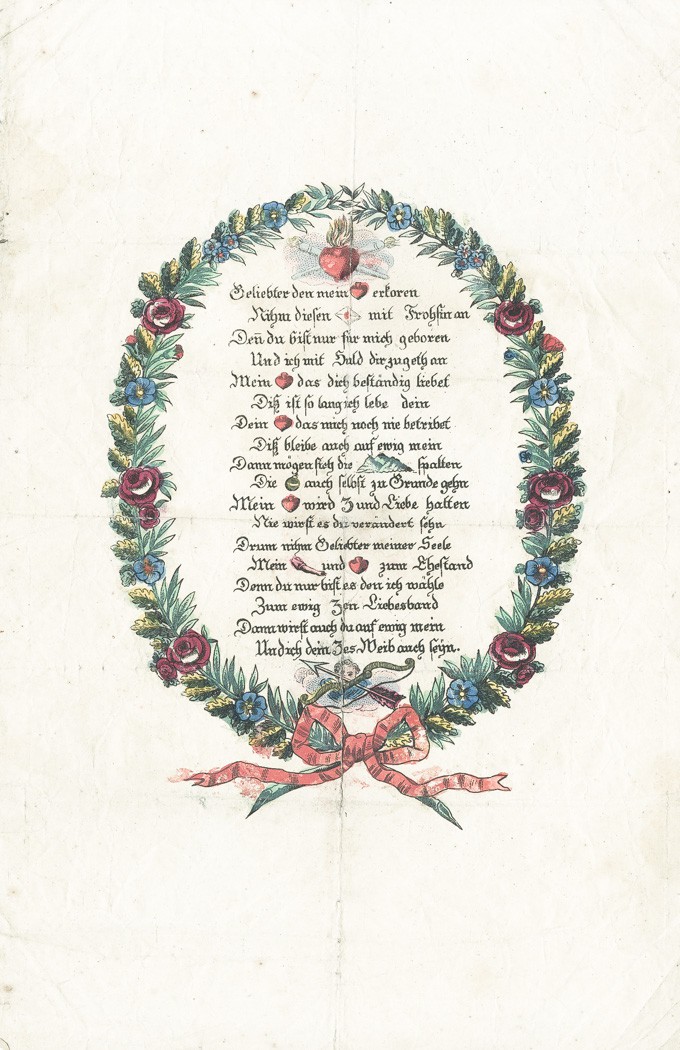 Geliebter den mein erkoren
Nihm diesen mit Frohsin an
Deñ du bist nur für mich geboren
Und ich mit Huld dir zugethan
Mein das dich beständig liebet
Diß ist so lang ich lebe dein
Dein das mich noch nie betribet
Diß bleibe auch auf ewig mein
Dann mögen sich die spalten
Die auch selbst zu Grunde gehn
Mein wird 3 und Liebe halten
Nie wirst es du verändert sehn
Drum nihm Geliebter meiner Seele
Mein und zum Ehestand
Denn du nur bist es den ich wähle
Zum ewig 3en Liebesband
Dann wirst auch du auf ewig mein
Und ich dein 3es Weib auch seÿn.